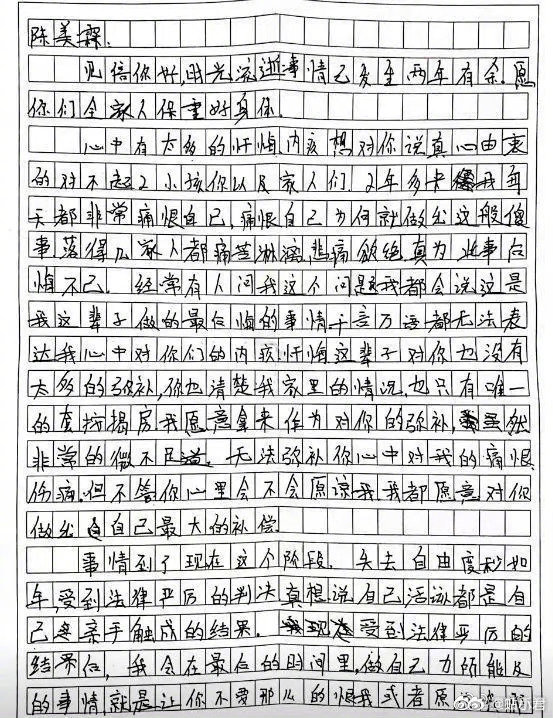 陈美霖.
见信你好,时光流逝事情已发生两年有余.愿
你们全家人保重好身体.
心中有太多的忏悔内疚想对你说真心由衷
的对不起2小孩你以及家人们.2年多来我每
天都非常痛恨自己,痛恨自己为何就做出这般傻
事落得几家人都痛苦淋漓悲痛欲绝真为此事后
悔不已.经常有人问我这个问题我都会说这是
我这辈子做的最后悔的事情千言万语都无法表
达我心中对你们的内疚忏悔这辈子对你也没有
太多的弥补,你也清楚我家里的情况.也只有唯一
的套按揭房我愿意拿来作为对你的弥补,虽然
非常的微不足道.无法弥补你心中对我的痛恨
伤痛.但不管你心里会不会原谅我我都愿意对你
做出自己最大的补偿.
事情到了现在这个阶段.失去自由度秒如
年,受到法律严厉的判决真想说自己活该都是自
己亲手触成的结果.受到法律严厉的
结果后,我会在最后的时间里,做自己力所能及
的事情,就是让你不要那么的恨我或者原